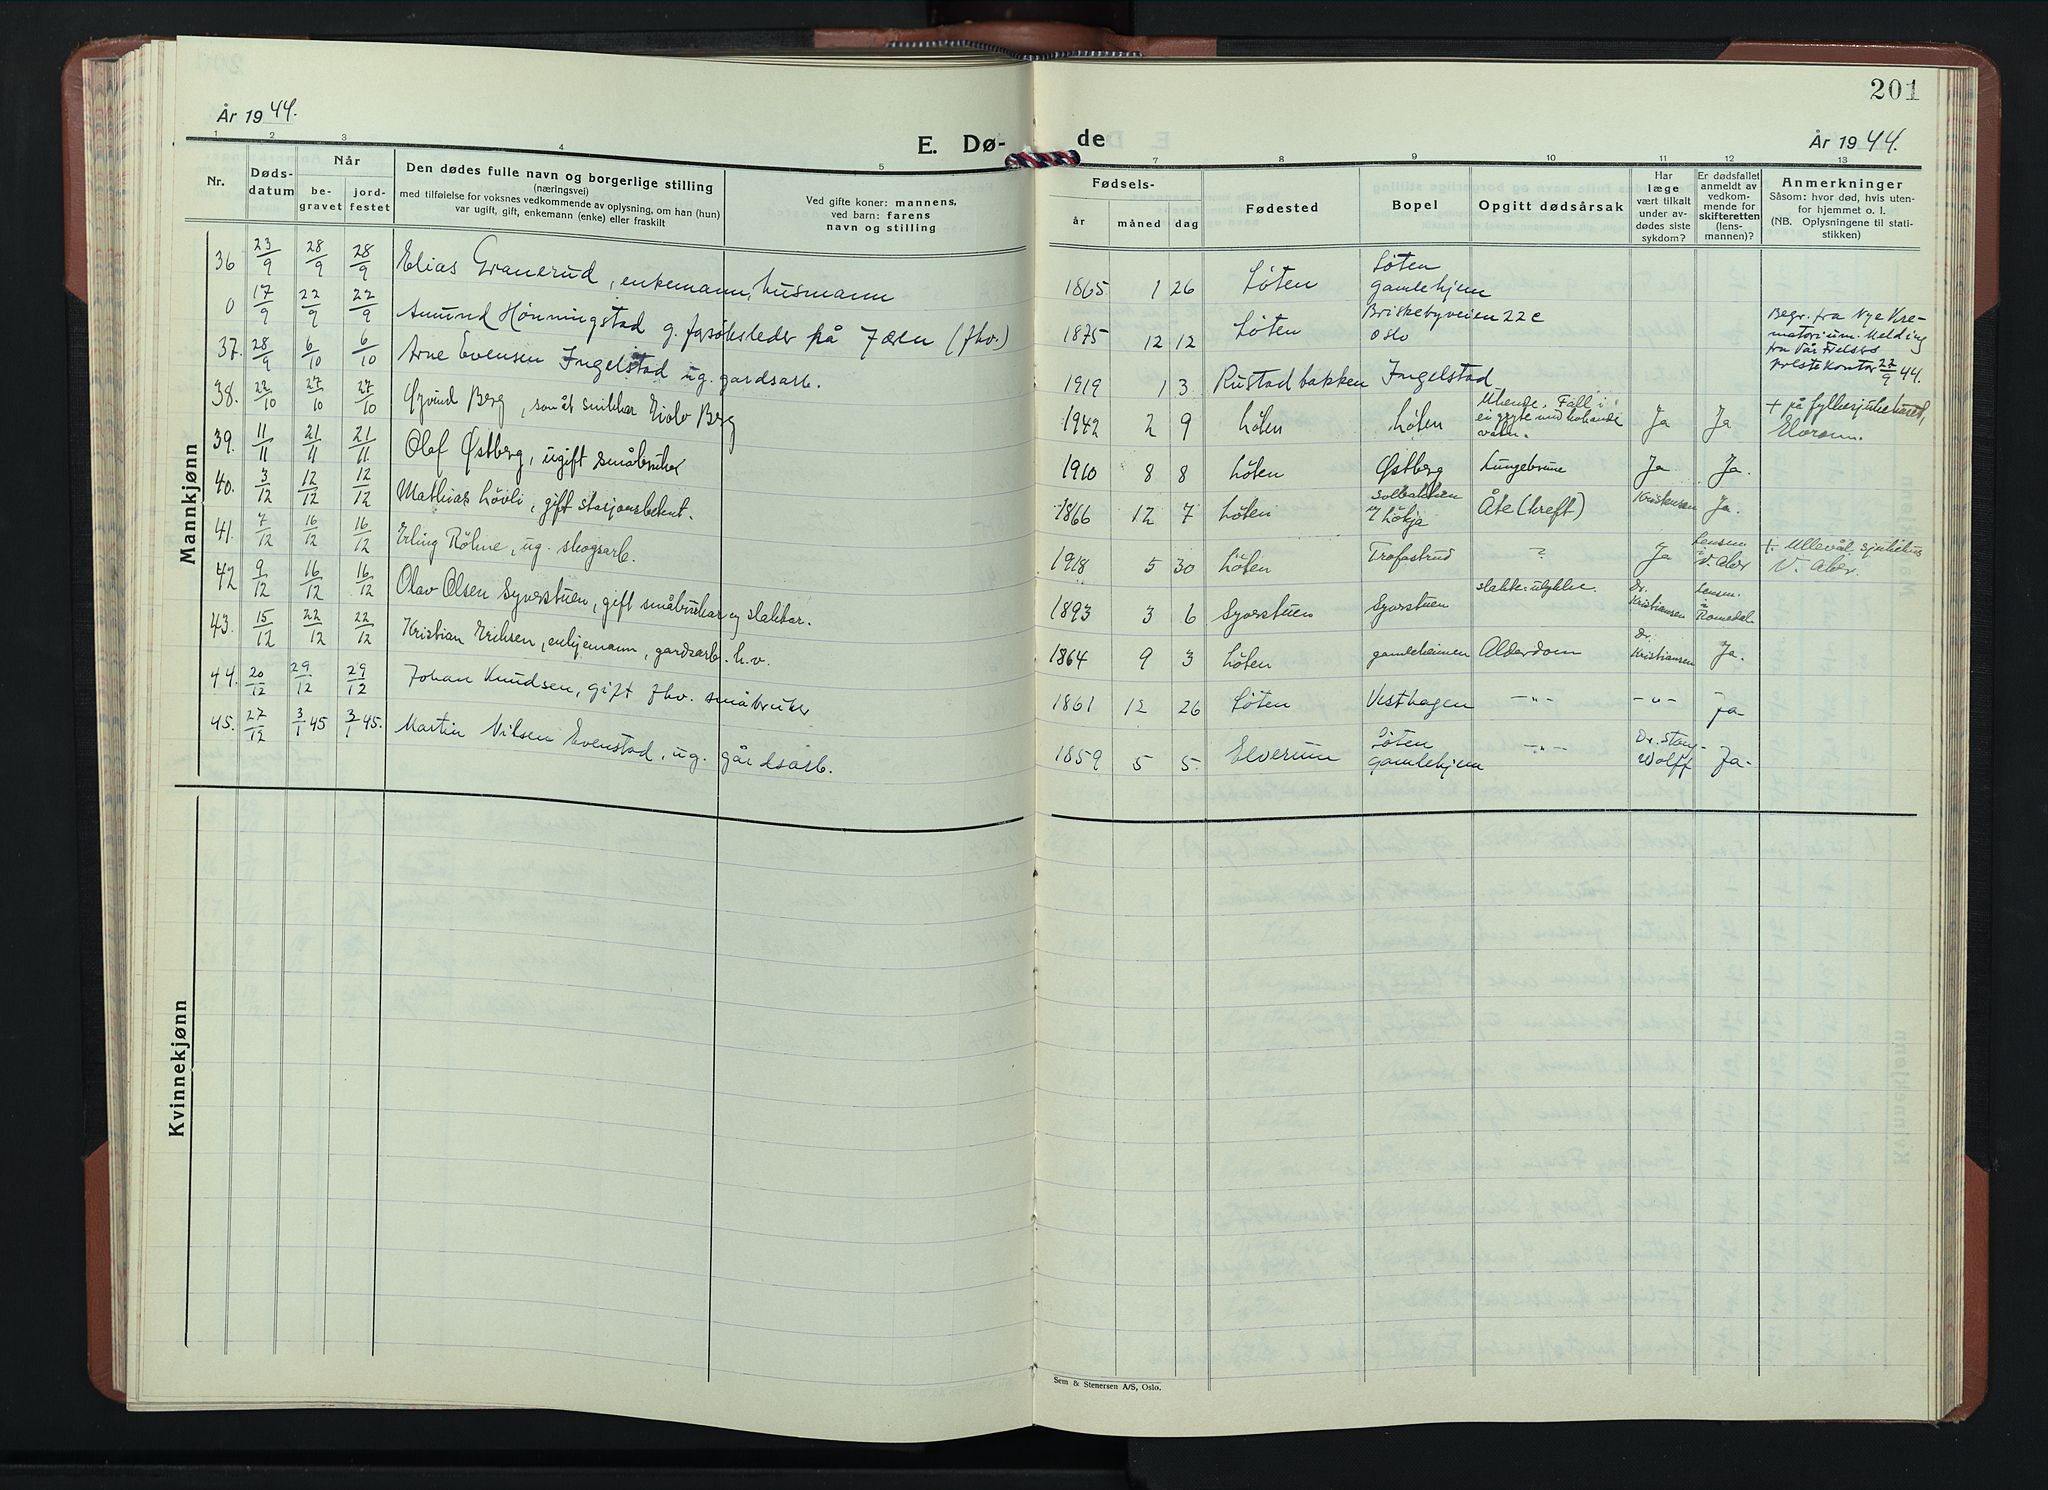 201
År 1944.
E. Dø-
de
År 1944.
1 2 3 4 5 7 8 9 10 11 12 13
Nr.
Døds-
datum
Når
be-
gravet
jord-
festet
Den dødes fulle navn og borgerlige stilling
(næringsvei)
med tilføielse for voksnes vedkommende av oplysning, om han (hun)
var ugift, gift, enkemann (enke) eller fraskilt
Ved gifte koner: mannens,
ved barn: farens
navn og stilling
Fødsels-
år
måned
dag
Fødested
Bopel
Opgitt dødsårsak
Har
læge
vært tilkalt
under av-
dødes siste
sykdom?
Er dødsfallet
anmeldt av
vedkom-
mende for
skifteretten
(lens-
mannen)?
Anmerkninger
Såsom: hvor død, hvis uten-
for hjemmet o. l.
(NB. Oplysningene til stati-
stikken)
Mannkjønn
36 23/9 28/9 28/9 Elias Granerud, enkemann, husmann 1865 1 26 Løten Løten
gamlehjem
0 17/9 22/9 22/9 Amund Hønningstad g. forsøksleder på Jæren (fhv.) 1875 12 12 Løten Briskebyveien 22c
Oslo
Begr. fra Nye Kre-
matorium. Melding
fra Vår Frelsers
prestekontor 22/9 44.
37. 28/9 6/10 6/10 Arne Evensen Ingelstad ug. gardsarb. 1919 1 3 Rustadbakken Ingelstad
38. 22/10 27/10 27/10 Øyvind Berg, son åt snikkar Eiolv Berg 1942 2 9 Løten Løten Uhende. Fall i
ei gryte med kokande
vatn. Ja Ja + på fylkessjukehuset,
Elverum.
39. 11/11 21/11 21/11 Olaf Østberg, ugift småbruker 1910 8 8 Løten Østberg Lungebrune Ja Ja.
40. 3/12 12/12 12/12 Mathias Løvli, gift stasjonsbetent. 1866 12 7 Løten Solbakken
Løkja Åte (kreft) Kristensen Ja.
41. 7/12 16/12 16/12 Erling Röhne, ug. skogsarb. 1918 5 30 Löten Trofastrud ? Ja Lensm.
i
V. Aker + Ullevål sjukehus
V. Aker.
42 9/12 16/12 16/12 Olav Olsen Syverstuen, gift småbrukar og slaktar. 1893 3 6 Syverstuen Syverstuen slakte-ulykke. Dr.
Kristiansen Lensm.
i
Romedal
43. 15/12 22/12 22/12 Kristian Eriksen, enkjemann, gardsarb. h.v. 1864 9 3 Løten gamleheimen Alderdom Dr.
Kristiansen Ja.
44. 20/12 29/12 29/12 Johan Knudsen, gift fhv. småbruker 1861 12 26 Løten Vesthagen -"- -"- Ja
45. 27/12 3/1 45 3/1 45. Martin Nilsen Evenstad, ug. gårdsarb. 1859 5 5. Elverum Løten
Gamlehjem -"- Dr. Stang-
Wolff Ja-
Kvinnekjønn
Sem & Stenersen A/S, Oslo.